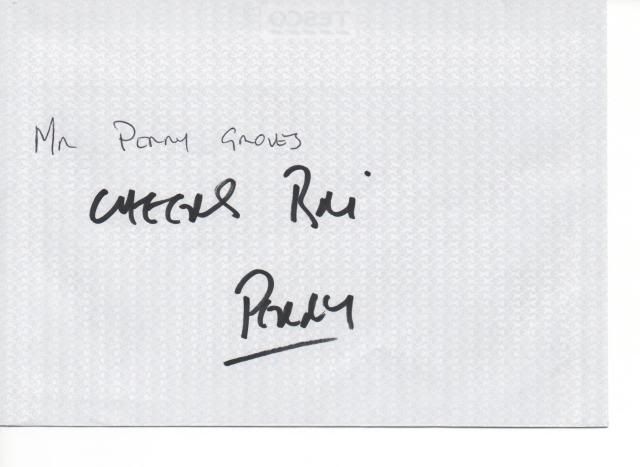 TESCO
Mr Perry Groves
CHEERS Bri
PERRY